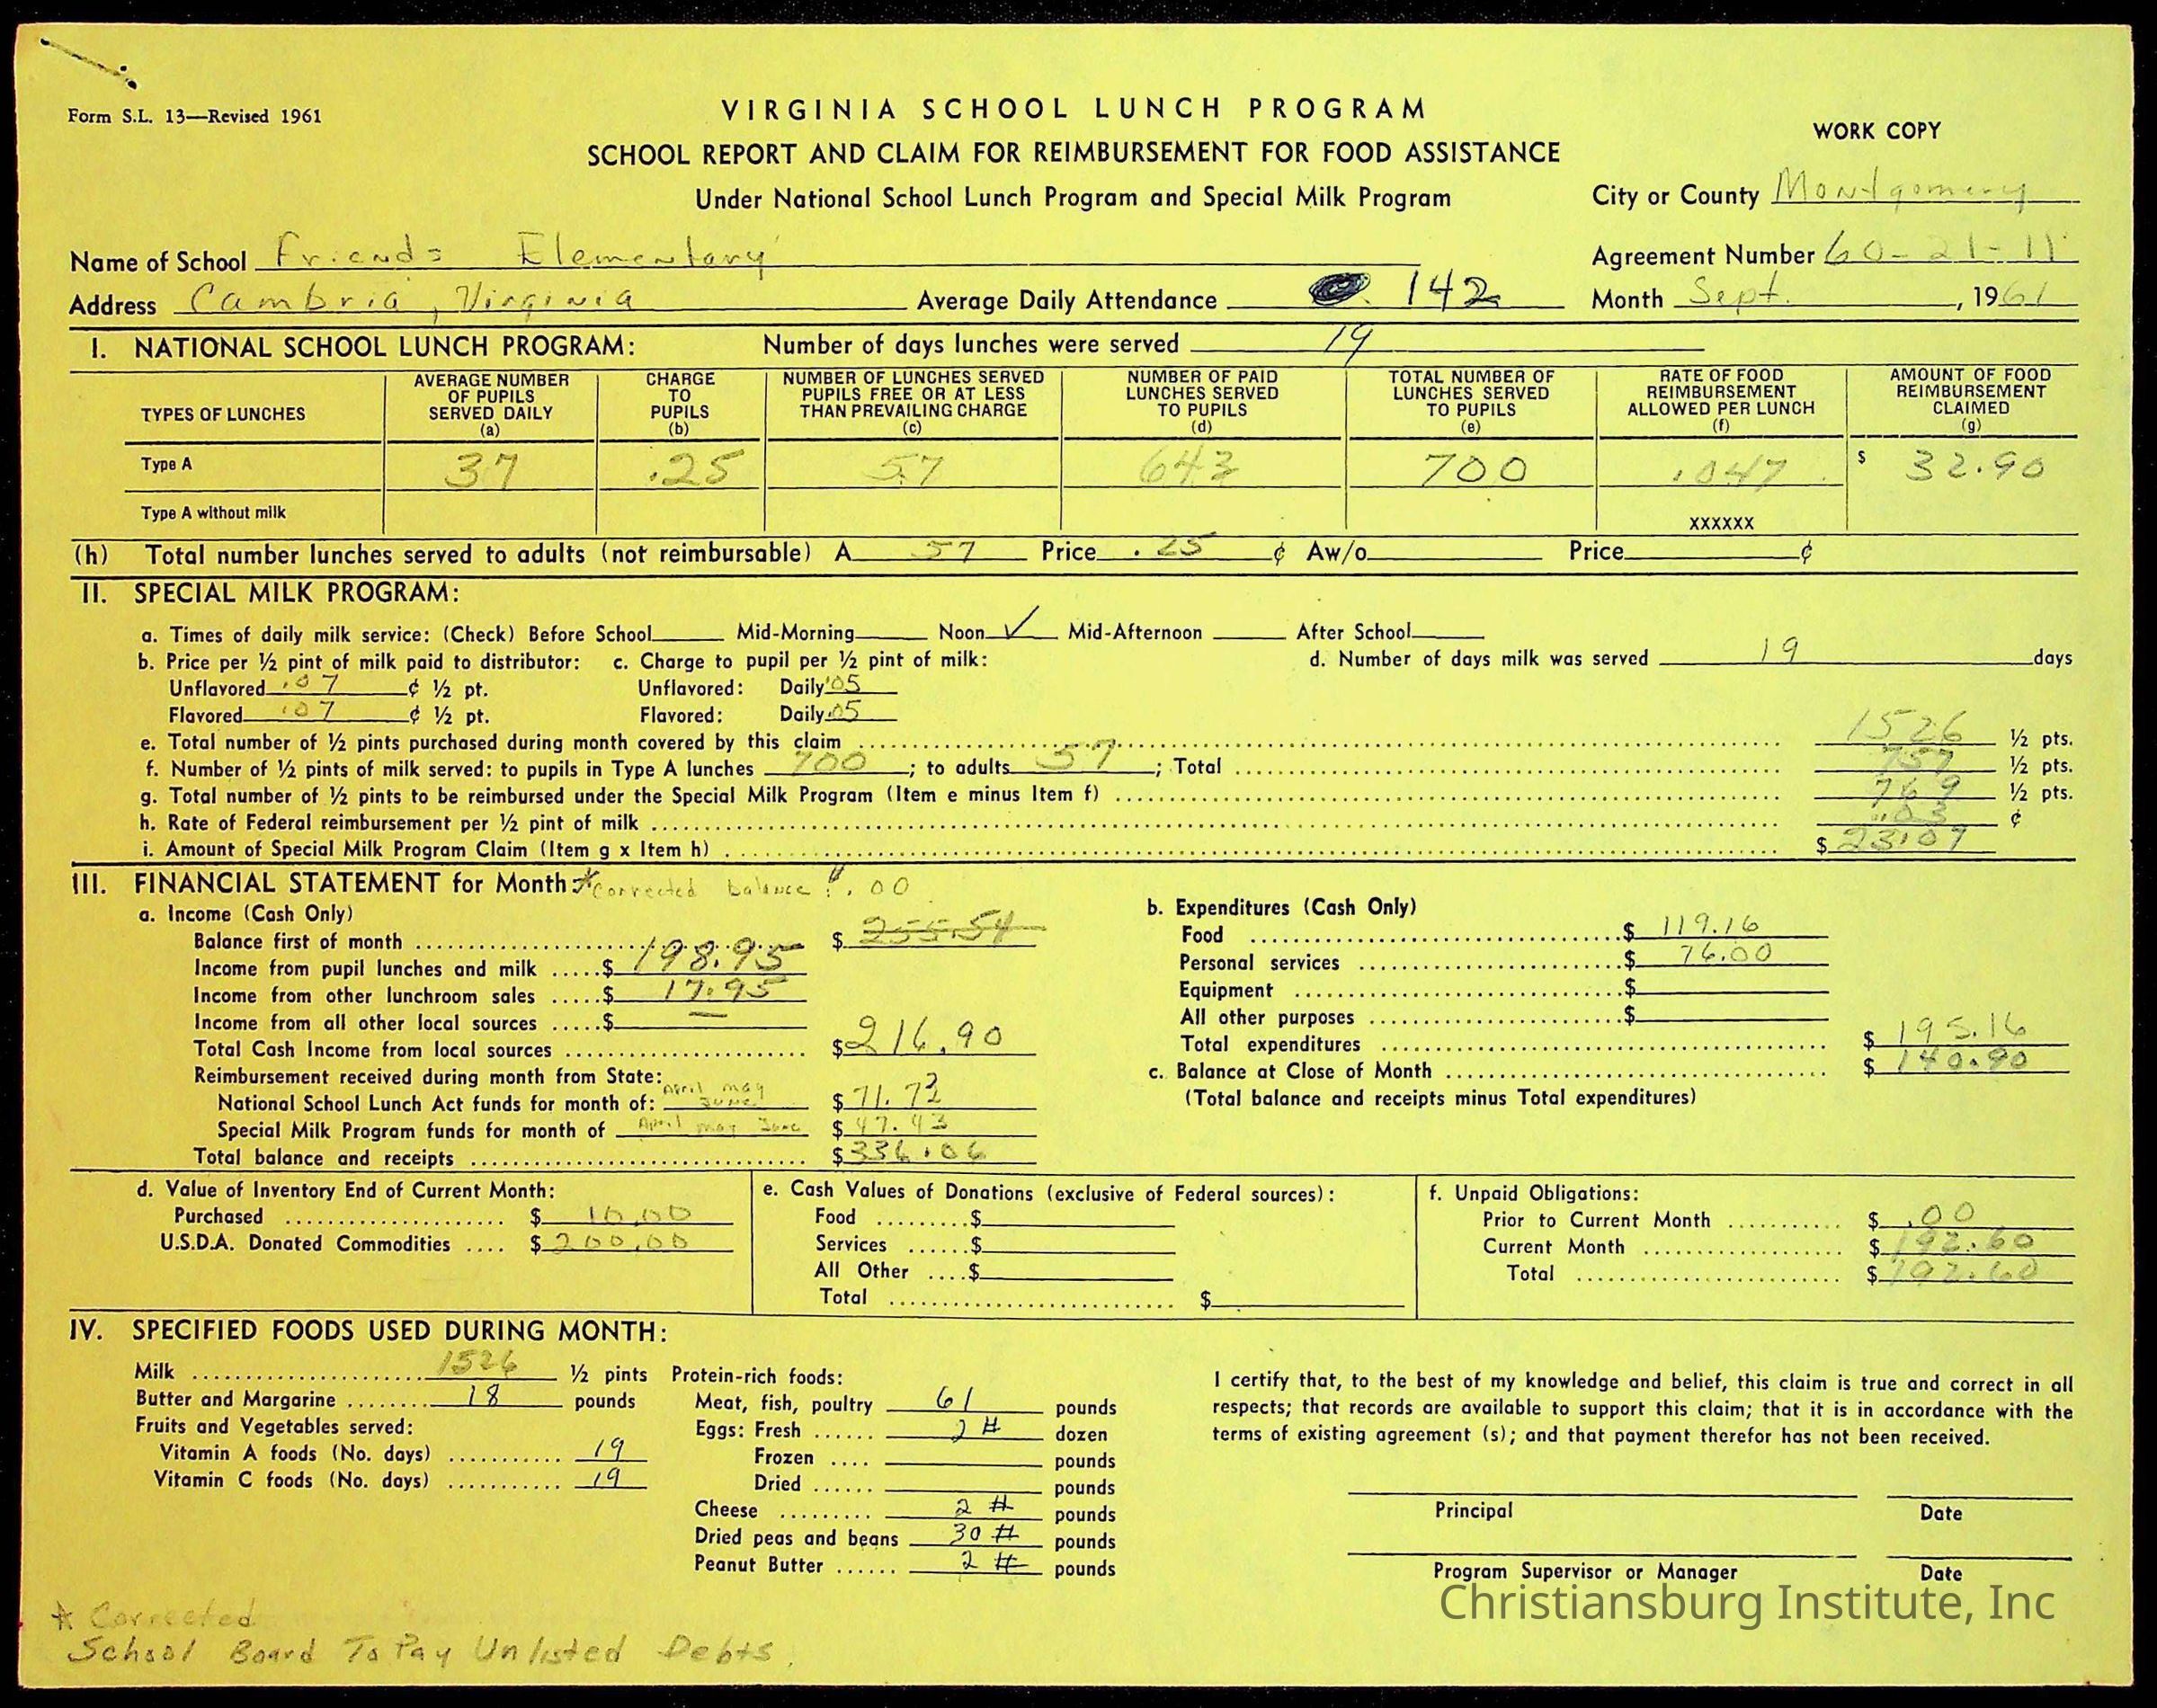 Form S.L. 13—Revised 1961
VIRGINIA SCHOOL LUNCH PROGRAM
WORK COPY
SCHOOL REPORT AND CLAIM FOR REIMBURSEMENT FOR FOOD ASSISTANCE
Under National School Lunch Program and Special Milk Program
City or County Montgomery
Name of School Friends Elementary
Agreement Number 60-21-11
Address Cambria, Virginia Average Daily Attendance 142 Month Sept., 1961
I. NATIONAL SCHOOL LUNCH PROGRAM: Number of days lunches were served 19
TYPES OF LUNCHES
AVERAGE NUMBER OF PUPILS SERVED DAILY (a)
CHARGE TO PUPILS (b)
NUMBER OF LUNCHES SERVED PUPILS FREE OR AT LESS THAN PREVAILING CHARGE (c)
NUMBER OF PAID LUNCHES SERVED TO PUPILS (d)
TOTAL NUMBER OF LUNCHES SERVED TO PUPILS (e)
RATE OF FOOD REIMBURSEMENT ALLOWED PER LUNCH (f)
AMOUNT OF FOOD REIMBURSEMENT CLAIMED (g)
Type A 37 .25 57 643 700 .047 $ 32.90
Type A without milk XXXXXX
(h) Total number lunches served to adults (not reimbursable) A 57 Price .25 ¢ Aw/o Price ¢
II. SPECIAL MILK PROGRAM:
a. Times of daily milk service: (Check) Before School Mid-Morning Noon ✓ Mid-Afternoon After School
b. Price per ½ pint of milk paid to distributor: c. Charge to pupil per ½ pint of milk: d. Number of days milk was served 19 days
Unflavored .07 ¢ ½ pt. Unflavored: Daily .05
Flavored .07 ¢ ½ pt. Flavored: Daily .05
e. Total number of ½ pints purchased during month covered by this claim 1526 ½ pts.
f. Number of ½ pints of milk served: to pupils in Type A lunches 700; to adults 57; Total 757 ½ pts.
g. Total number of ½ pints to be reimbursed under the Special Milk Program (Item e minus Item f) 769 ½ pts.
h. Rate of Federal reimbursement per ½ pint of milk .03 ¢
i. Amount of Special Milk Program Claim (Item g x Item h) $ 23.07
III. FINANCIAL STATEMENT for Month: * Corrected balance .00
a. Income (Cash Only)
Balance first of month $ 255.54
Income from pupil lunches and milk $ 198.95
Income from other lunchroom sales $ 17.95
Income from all other local sources $ —
Total Cash Income from local sources $ 216.90
Reimbursement received during month from State:
National School Lunch Act funds for month of: April May June $ 71.73
Special Milk Program funds for month of April May June $ 47.43
Total balance and receipts $ 336.06
b. Expenditures (Cash Only)
Food $ 119.16
Personal services $ 76.00
Equipment $
All other purposes $
Total expenditures $ 195.16
c. Balance at Close of Month $ 140.90
(Total balance and receipts minus Total expenditures)
d. Value of Inventory End of Current Month:
Purchased $ 10.00
U.S.D.A. Donated Commodities $ 200.00
e. Cash Values of Donations (exclusive of Federal sources):
Food $
Services $
All Other $
Total $
f. Unpaid Obligations:
Prior to Current Month $ .00
Current Month $ 192.60
Total $ 192.60
IV. SPECIFIED FOODS USED DURING MONTH:
Milk 1526 ½ pints
Butter and Margarine 18 pounds
Fruits and Vegetables served:
Vitamin A foods (No. days) 19
Vitamin C foods (No. days) 19
Protein-rich foods:
Meat, fish, poultry 61 pounds
Eggs: Fresh 2 # dozen
Frozen pounds
Dried pounds
Cheese 2 # pounds
Dried peas and beans 30 # pounds
Peanut Butter 2 # pounds
I certify that, to the best of my knowledge and belief, this claim is true and correct in all
respects; that records are available to support this claim; that it is in accordance with the
terms of existing agreement (s); and that payment therefor has not been received.
Principal Date
Program Supervisor or Manager Date
Christiansburg Institute, Inc
* Corrected
School Board To Pay Unlisted Debts.